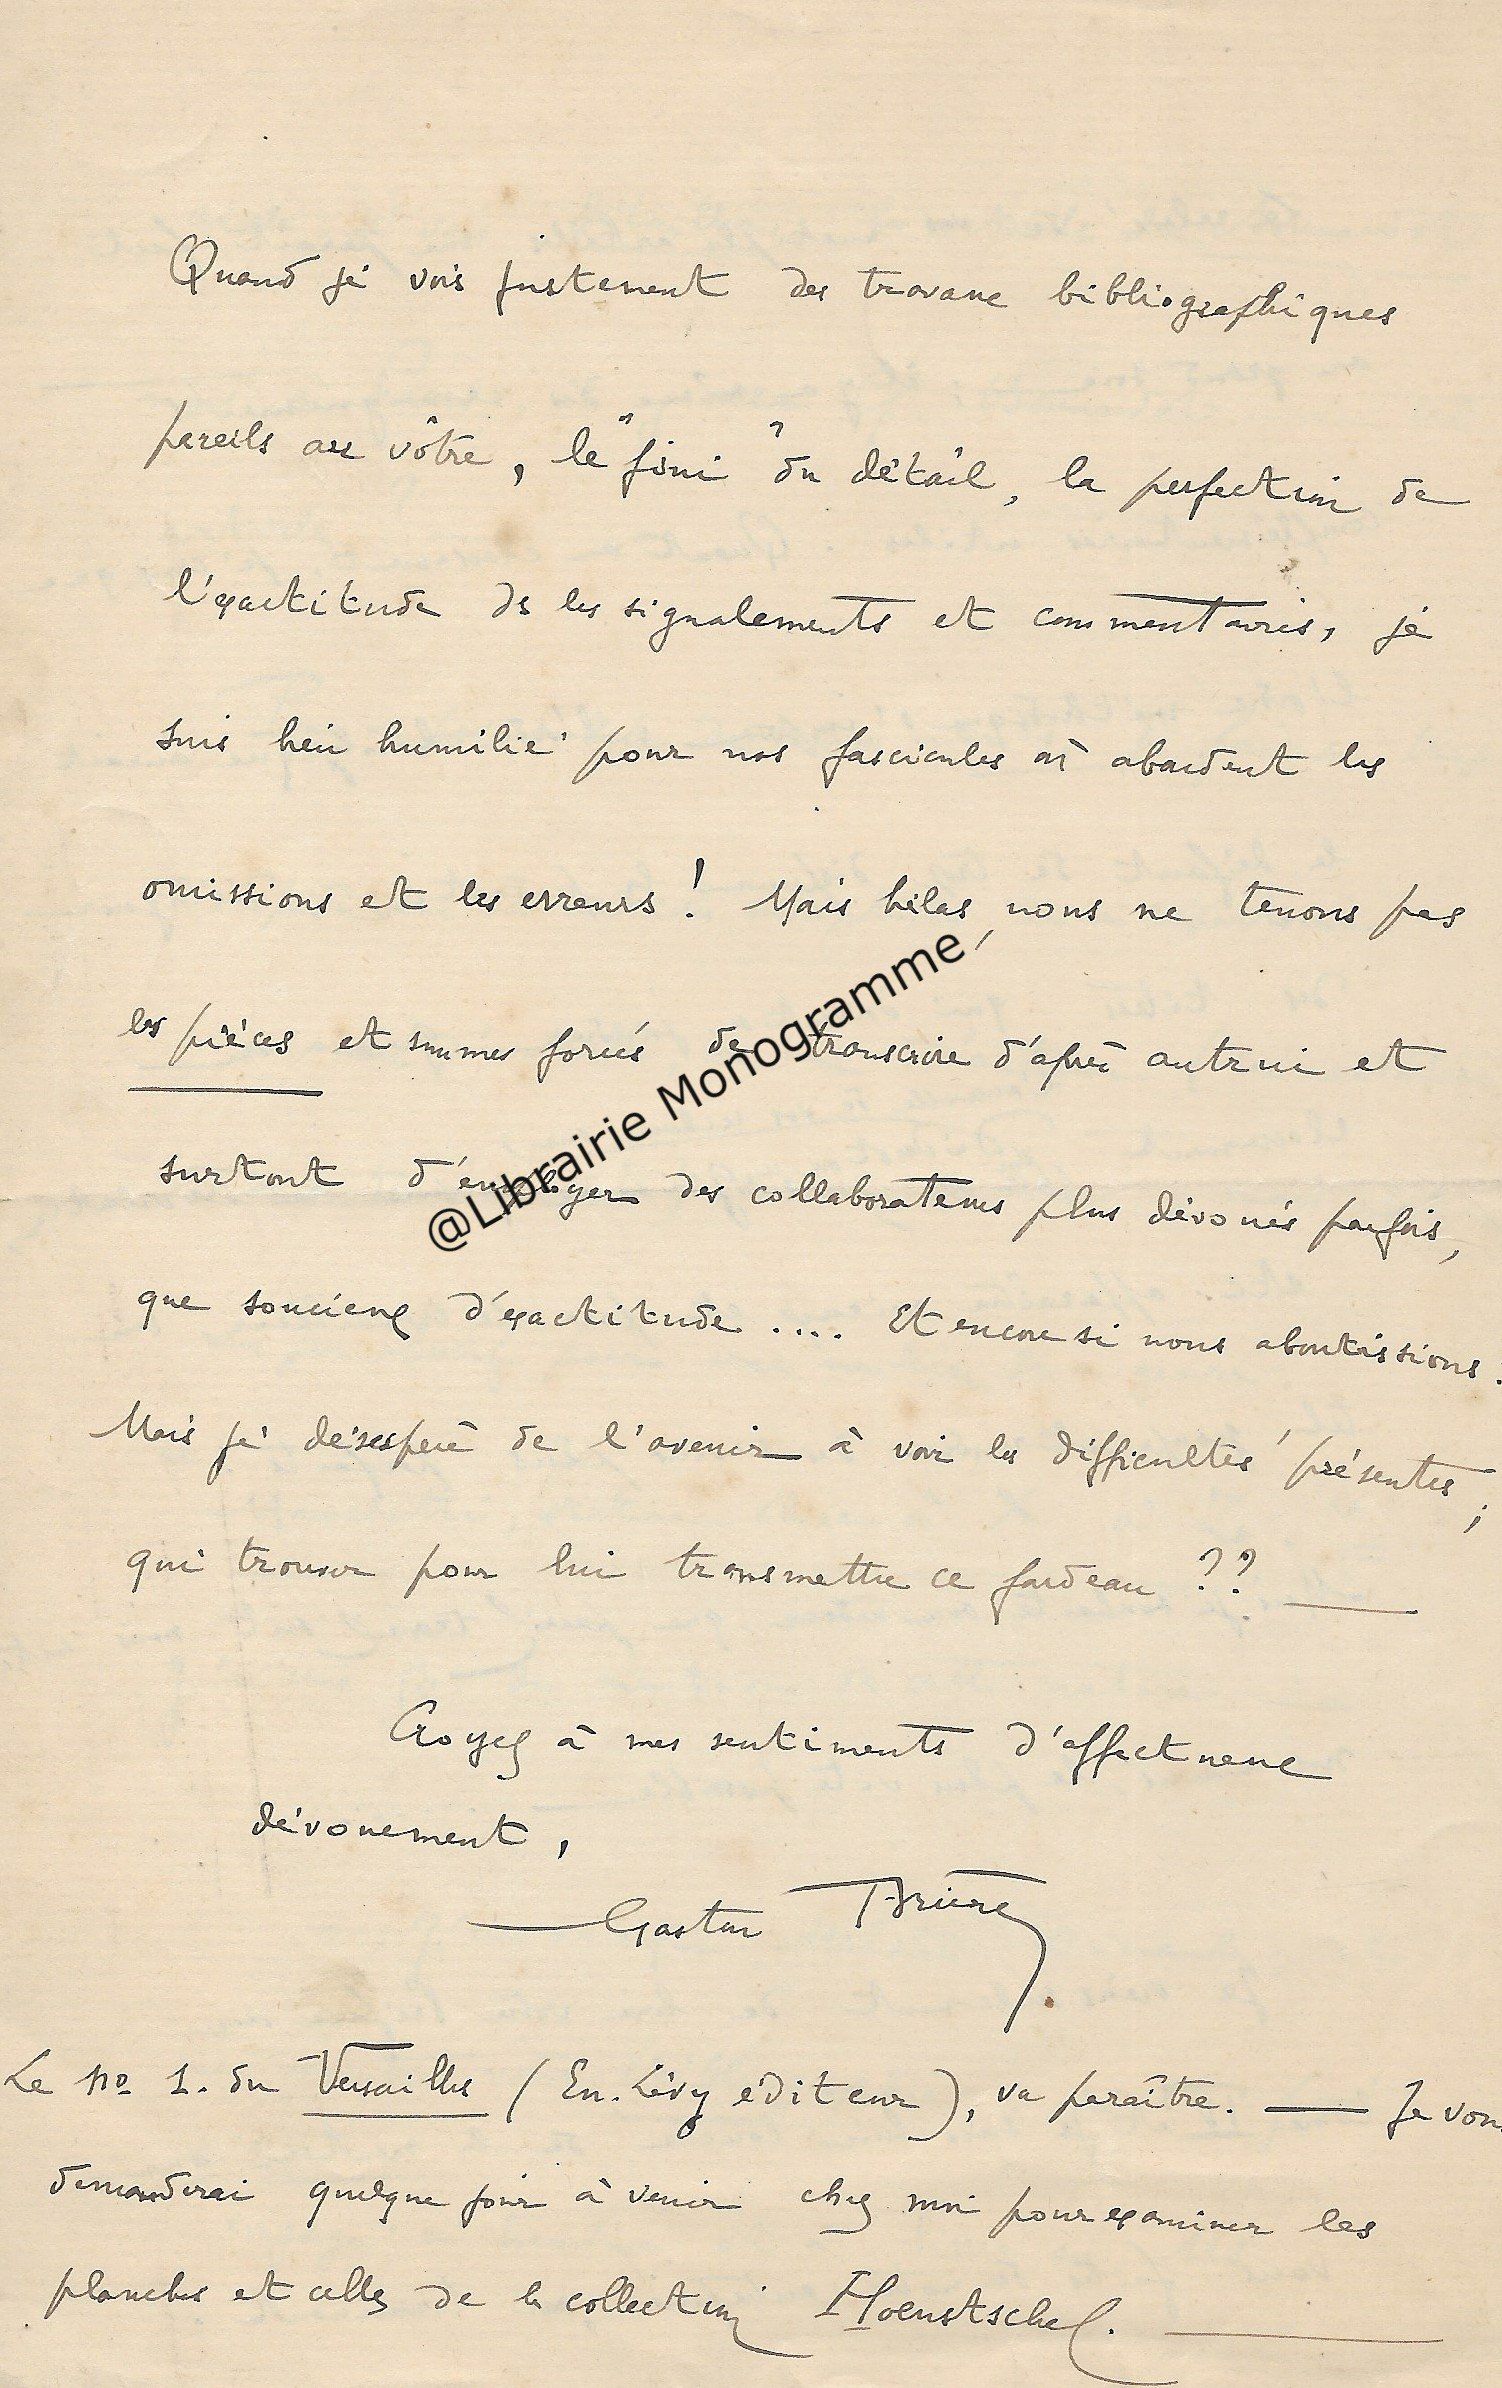 Quand je vois justement des travaux bibliographiques
pareils au vôtre, le "fini" du détail, la perfection de
l'exactitude ds les signalements et commentaires, je
suis bien humilié pour nos fascicules où abondent les
omissions et les erreurs ! Mais hélas, nous ne tenons pas
les pièces et sommes forcés de transcrire d'après autrui et
surtout d'employer des collaborateurs plus dévoués parfois,
que soucieux d'exactitude .... Et encore si nous aboutissions.
Mais je désespère de l'avenir à voir les difficultés présentes ;
qui trouver pour lui transmettre ce fardeau ?? —
Croyez à mes sentiments d'affectueux
dévouement,
Gaston Brière.
Le No 1. du Versailles (Em. Lévy éditeur), va paraître. — Je vous
demanderai quelque jour à venir chez moi pour examiner les
planches et celles de la collection Hoentschel. —
@Librairie Monogramme